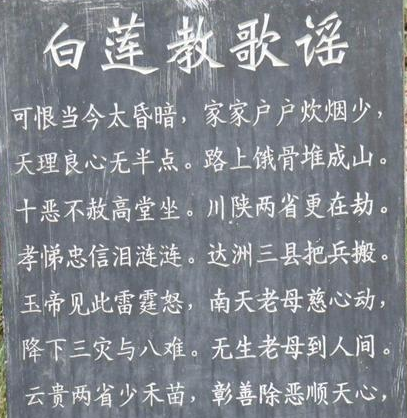 白莲教歌谣
可恨当今太昏暗，家家户户炊烟少，
天理良心无半点。路上饿骨堆成山。
十恶不赦高堂坐。川陕两省更在劫。
孝悌忠信泪涟涟。达洲三县把兵搬。
玉帝见此雷霆怒，南天老母慈心动，
降下三灾与八难。无生老母到人间。
云贵两省少禾苗，彰善除恶顺天心，